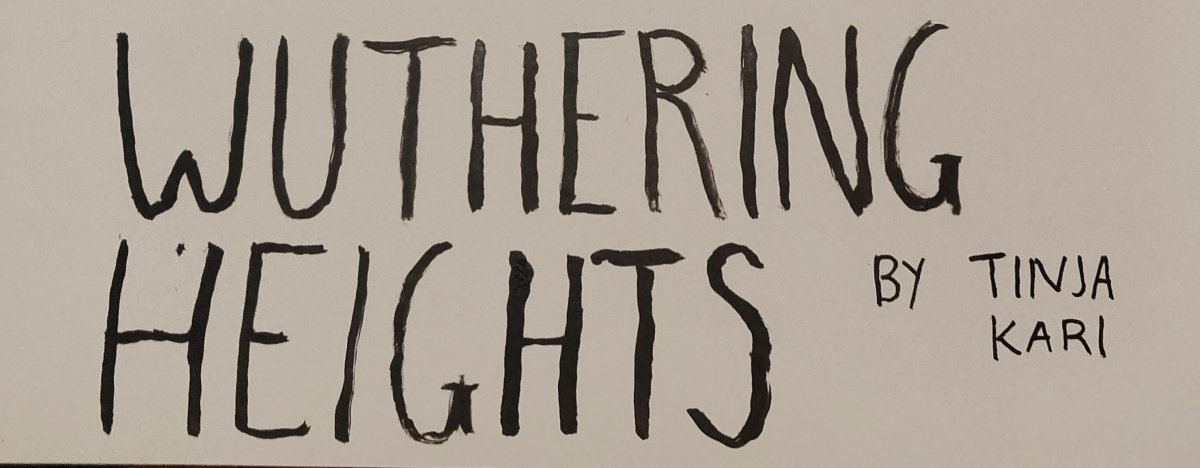 WUTHERING
HEIGHTS
BY TINJA
KARI